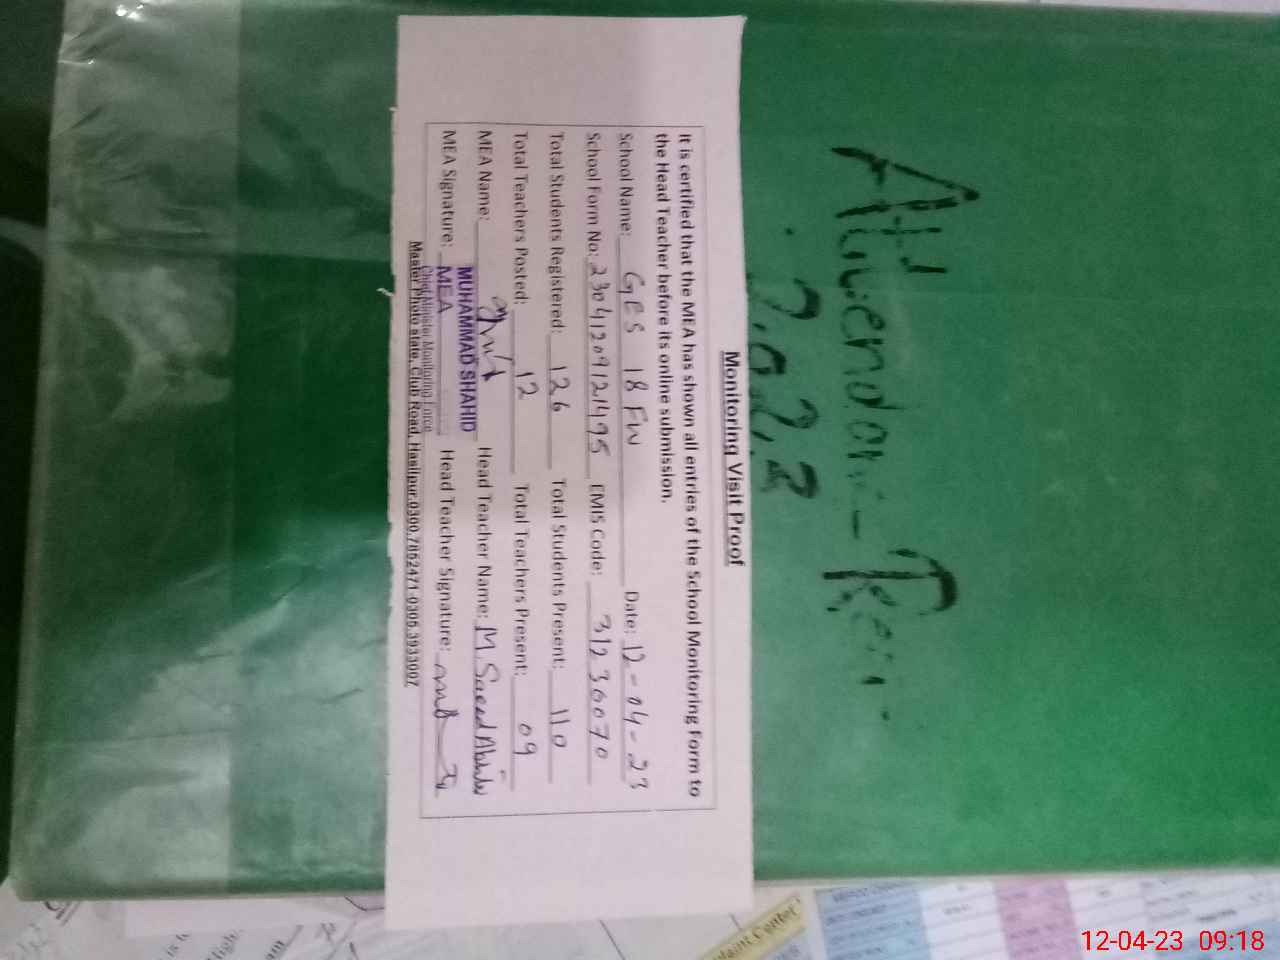 Monitoring Visit Proof
It is certified that the MEA has shown all entries of the School Monitoring Form to
the Head Teacher before its online submission.
School Name: GES 18 FW Date: 12-04-23
School Form No: 23041209121495 EMIS Code: 31236070
Total Students Registered: 126 Total Students Present: 110
Total Teachers Posted: 12 Total Teachers Present: 09
MEA Name: MUHAMMAD SHAHID Head Teacher Name: M. Saeed
MEA Signature: MEA Head Teacher Signature:
Chief Minister Monitoring Force
Master Photo state, Club Road, Hasilpur.0300.7852471-0305.3933007
12-04-23 09:18